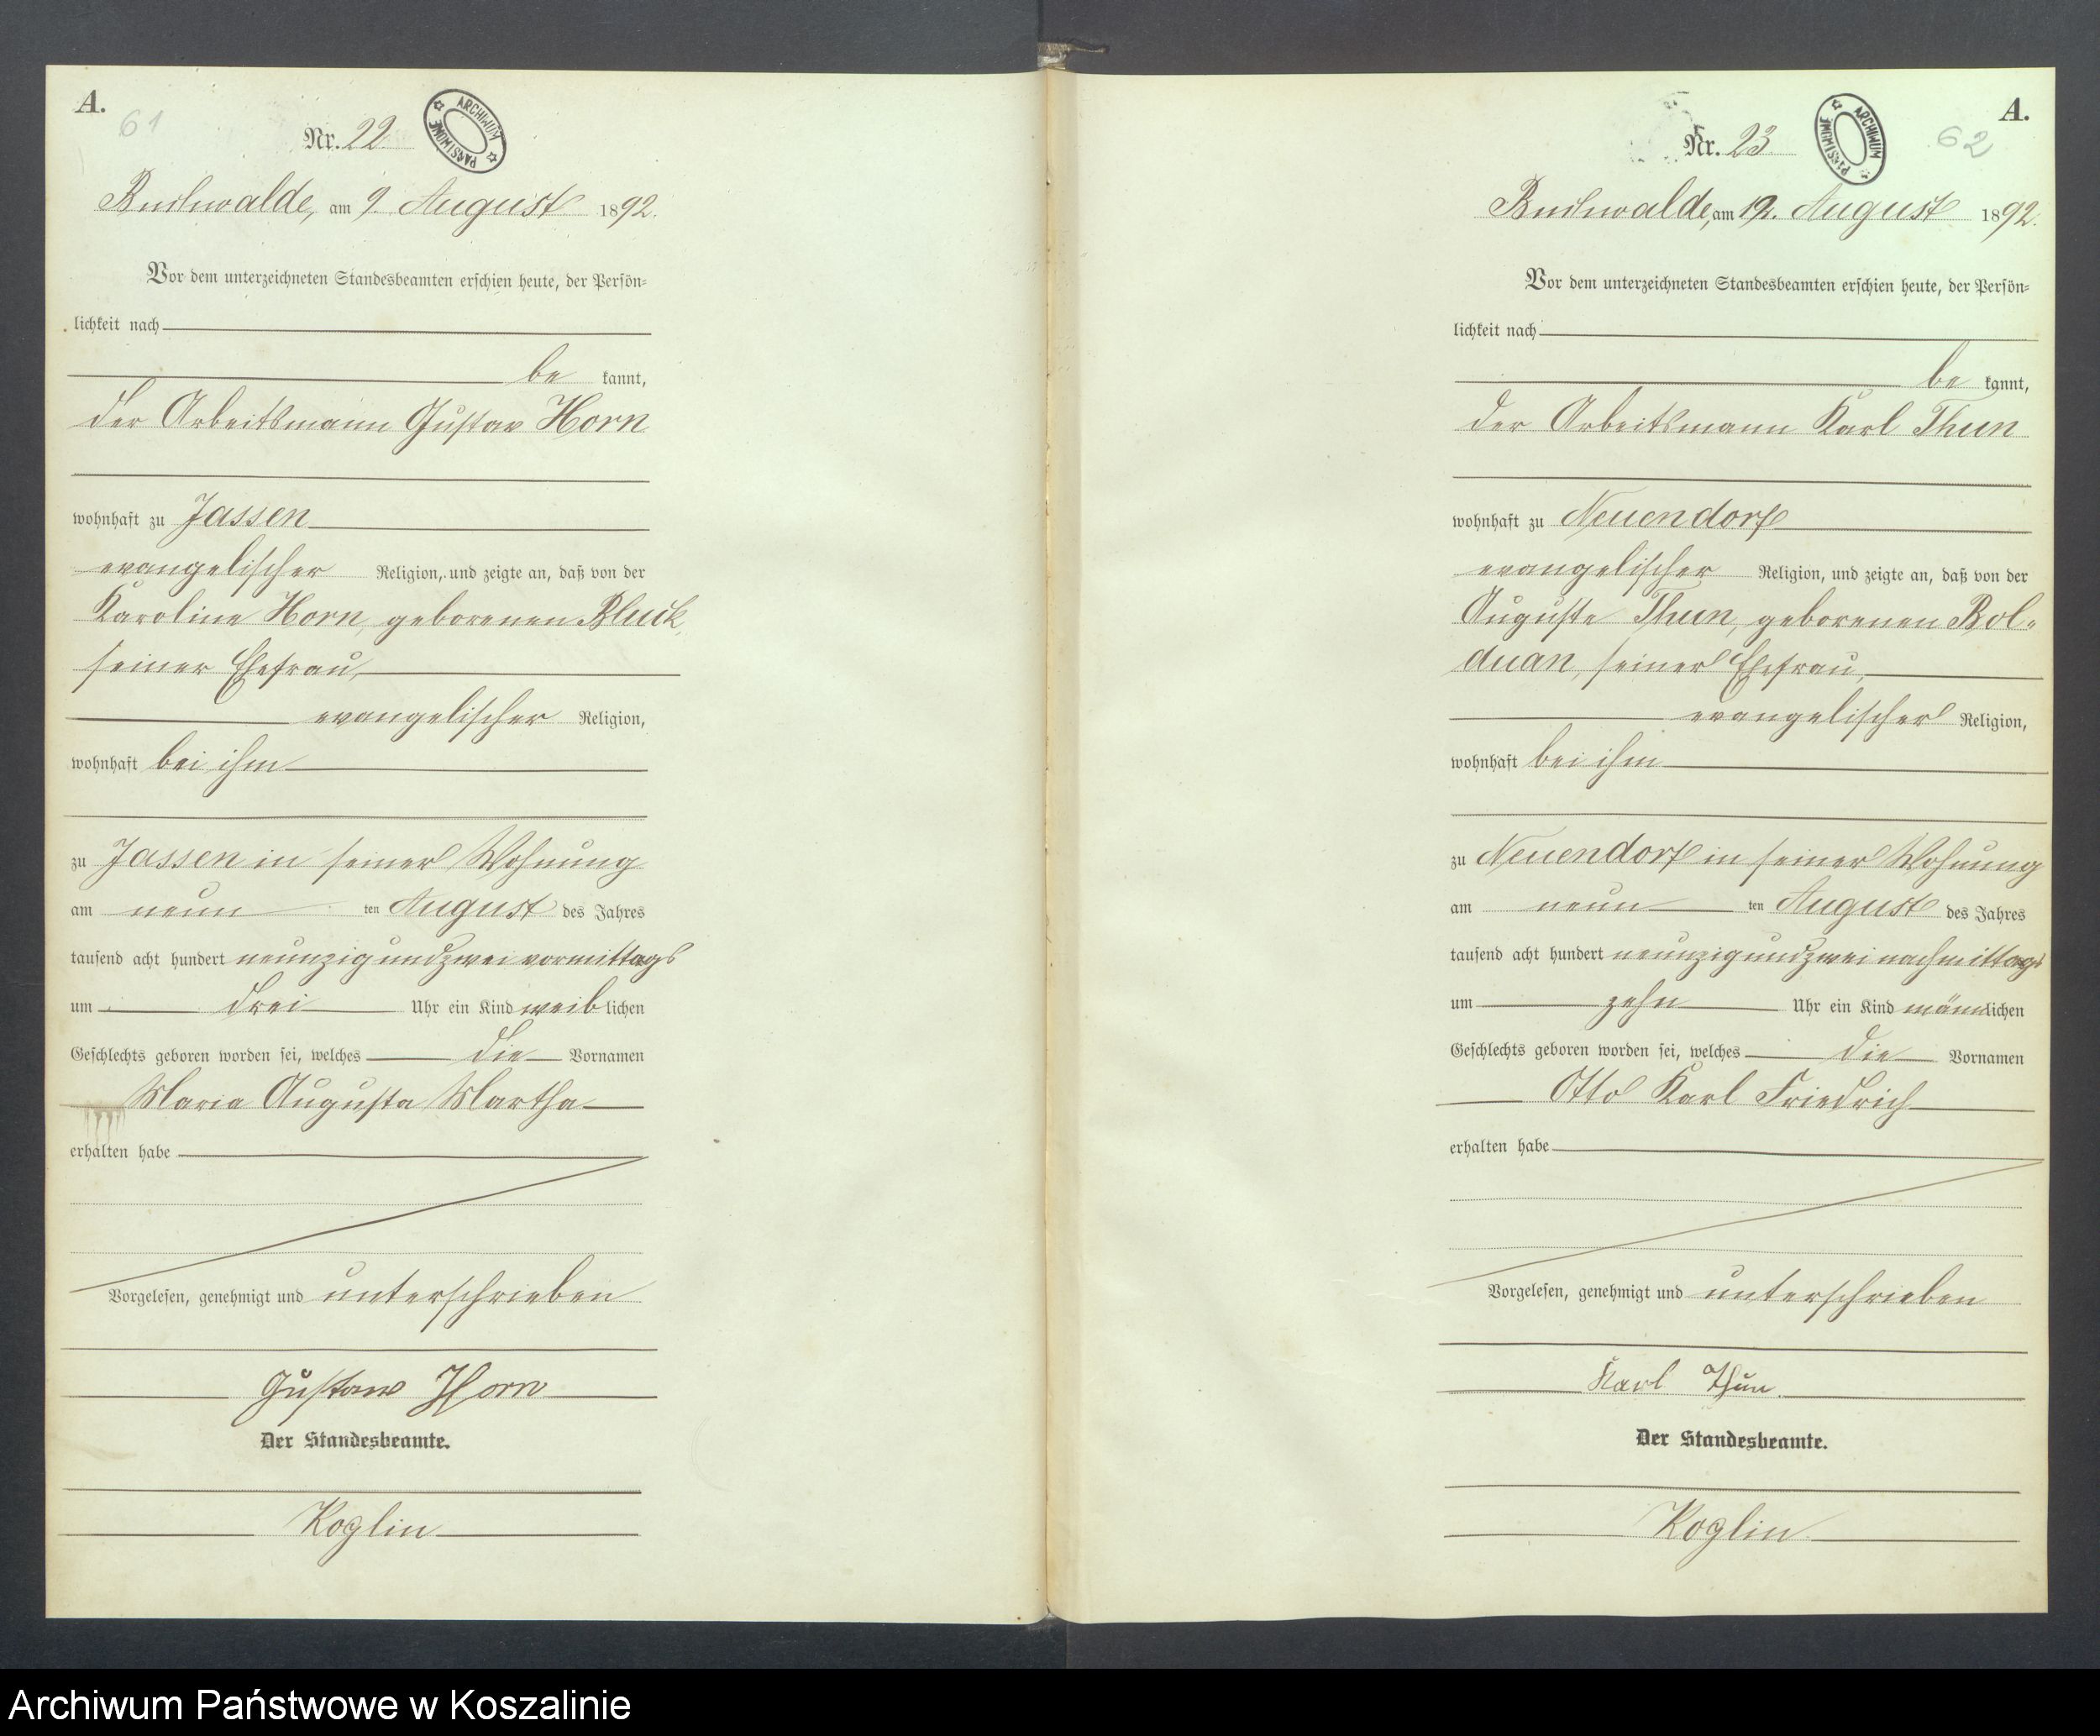 A.
61
Nr. 22
ARCHIWUM PAŃSTWOWE
Buchwalde, am 9. August 1892.
Vor dem unterzeichneten Standesbeamten erschien heute, der Persön=
lichkeit nach
be kannt,
der Arbeitsmann Gustav Horn
wohnhaft zu Jassen
evangelischer Religion, und zeigte an, daß von der
Karoline Horn, geborenen Bluck,
seiner Ehefrau,
evangelischer Religion,
wohnhaft bei ihm
zu Jassen in seiner Wohnung
am neun ten August des Jahres
tausend acht hundert neunzig und zwei vormittags
um drei Uhr ein Kind weiblichen
Geschlechts geboren worden sei, welches die Vornamen
Maria Augusta Martha
erhalten habe
Vorgelesen, genehmigt und unterschrieben
Gustaw Horn
Der Standesbeamte.
Koglin
A.
62
Nr. 23
ARCHIWUM PAŃSTWOWE
Buchwalde, am 12. August 1892.
Vor dem unterzeichneten Standesbeamten erschien heute, der Persön=
lichkeit nach
be kannt,
der Arbeitsmann Karl Thun
wohnhaft zu Neuendorf
evangelischer Religion, und zeigte an, daß von der
Auguste Thun, geborenen Bol=
duan, seiner Ehefrau,
evangelischer Religion,
wohnhaft bei ihm
zu Neuendorf in seiner Wohnung
am neun ten August des Jahres
tausend acht hundert neunzig und zwei nachmittags
um zehn Uhr ein Kind männlichen
Geschlechts geboren worden sei, welches die Vornamen
Otto Karl Friedrich
erhalten habe
Vorgelesen, genehmigt und unterschrieben
Karl Thun.
Der Standesbeamte.
Koglin
Archiwum Państwowe w Koszalinie